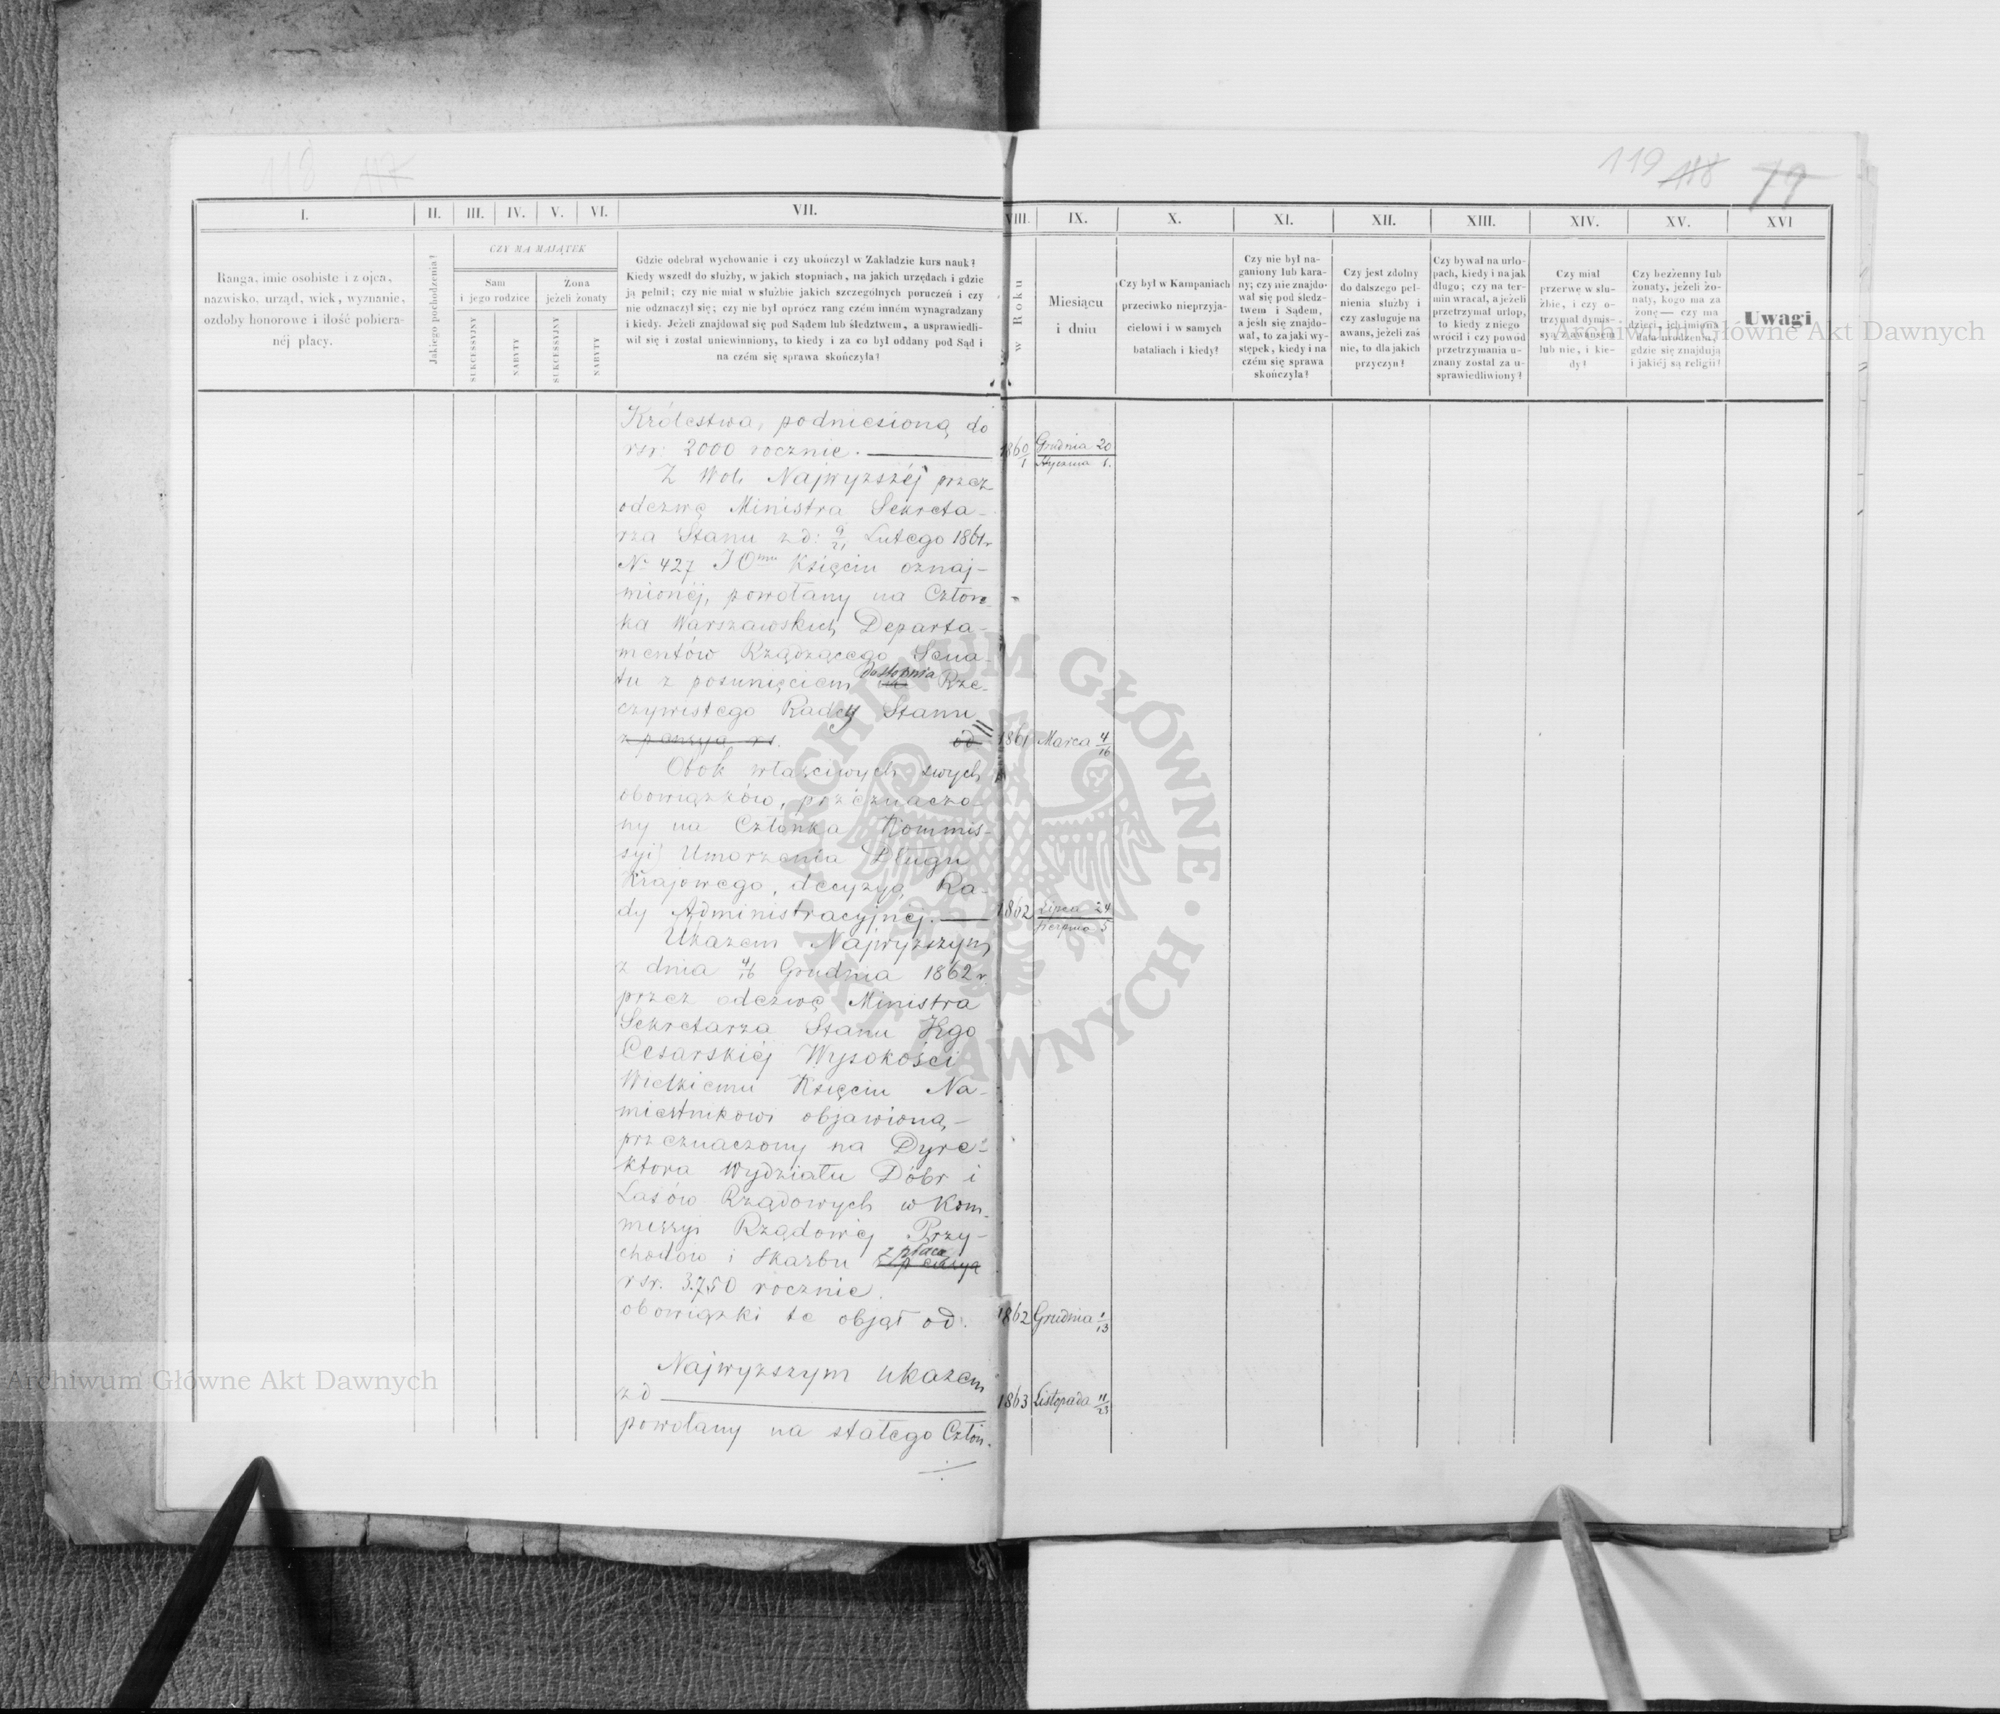 118 117
119 118 79
I.
II.
III.
IV.
V.
VI.
VII.
VIII.
IX.
X.
XI.
XII.
XIII.
XIV.
XV.
XVI
Ranga, imie osobiste i z ojca,
nazwisko, urząd, wiek, wyznanie,
ozdoby honorowe i ilość pobiera-
néj płacy.
Jakiego pochodzenia?
CZY MA MAJĄTEK
Sam
i jego rodzice
Żona
jeżeli żonaty
SUKCESSYJNY
NABYTY
SUKCESSYJNY
NABYTY
Gdzie odebrał wychowanie i czy ukończył w Zakładzie kurs nauk?
Kiedy wszedł do służby, w jakich stopniach, na jakich urzędach i gdzie
ją pełnił; czy nie miał w służbie jakich szczególnych poruczeń i czy
nie odznaczył się; czy nie był oprócz rang czém inném wynagradzany
i kiedy. Jeżeli znajdował się pod Sądem lub śledztwem, a usprawiedli-
wił się i został uniewinniony, to kiedy i za co był oddany pod Sąd i
na czém się sprawa skończyła?
w Roku
Miesiącu
i dniu
Czy był w Kampaniach
przeciwko nieprzyja-
cielowi i w samych
bataliach i kiedy?
Czy nie był na-
ganiony lub kara-
ny; czy nie znajdo-
wał się pod śledz-
twem i Sądem,
a jeśli się znajdo-
wał, to za jaki wy-
stępek, kiedy i na
czém się sprawa
skończyła?
Czy jest zdolny
do dalszego peł-
nienia służby i
czy zasługuje na
awans, jeżeli zaś
nie, to dla jakich
przyczyn?
Czy bywał na urlo-
pach, kiedy i na jak
długo; czy na ter-
min wracał, a jeżeli
przetrzymał urlop,
to kiedy z niego
wrócił i czy powód
przetrzymania u-
znany został za u-
sprawiedliwiony?
Czy miał
przerwę w słu-
żbie, i czy o-
trzymał dymis-
syą z awansem
lub nie, i kie-
dy?
Czy bezżenny lub
żonaty, jeżeli żo-
naty, kogo ma za
żonę — czy ma
dzieci, ich imiona
data urodzenia,
gdzie się znajdują
i jakiéj są religii?
Uwagi
Królestwa, podniesioną do
rsr: 2000 rocznie. — 1860/1 Grudnia 20 / Stycznia 1.
Z Woli Najwyższéj przez
odezwę Ministra Sekreta-
rza Stanu z d: 9/21 Lutego 1861 r
№ 427 JOmu Księciu oznaj-
mionéj, powołany na Człon-
ka Warszawskich Departa-
mentów Rządzącego Sena-
tu z posunięciem do stopnia na Rze-
czywistego Radcy Stanu
z pensyą rs. od 1861 Marca 4/16
Obok właściwych swych
obowiązków, przeznaczo-
ny na Członka Kommis-
syi Umorzenia Długu
Krajowego, decyzyą Ra-
dy Administracyjnéj. — 1862 Lipca 24 / Sierpnia 5
Ukazem Najwyższym
z dnia 4/16 Grudnia 1862 r
przez odezwę Ministra
Sekretarza Stanu Jego
Cesarskiéj Wysokości
Wielkiemu Księciu Na-
miestnikowi objawioną,
przeznaczony na Dyre-
ktora Wydziału Dóbr i
Lasów Rządowych w Kom-
missyi Rządowéj Przy-
chodów i Skarbu z płacą z pensyą
rsr. 3.750 rocznie.
obowiązki te objął od. 1862 Grudnia 1/13
Najwyższym ukazem
z d — 1863 Listopada 11/23
powołany na stałego Człon-
ARCHIWUM GŁÓWNE AKT DAWNYCH
Archiwum Główne Akt Dawnych
Archiwum Główne Akt Dawnych